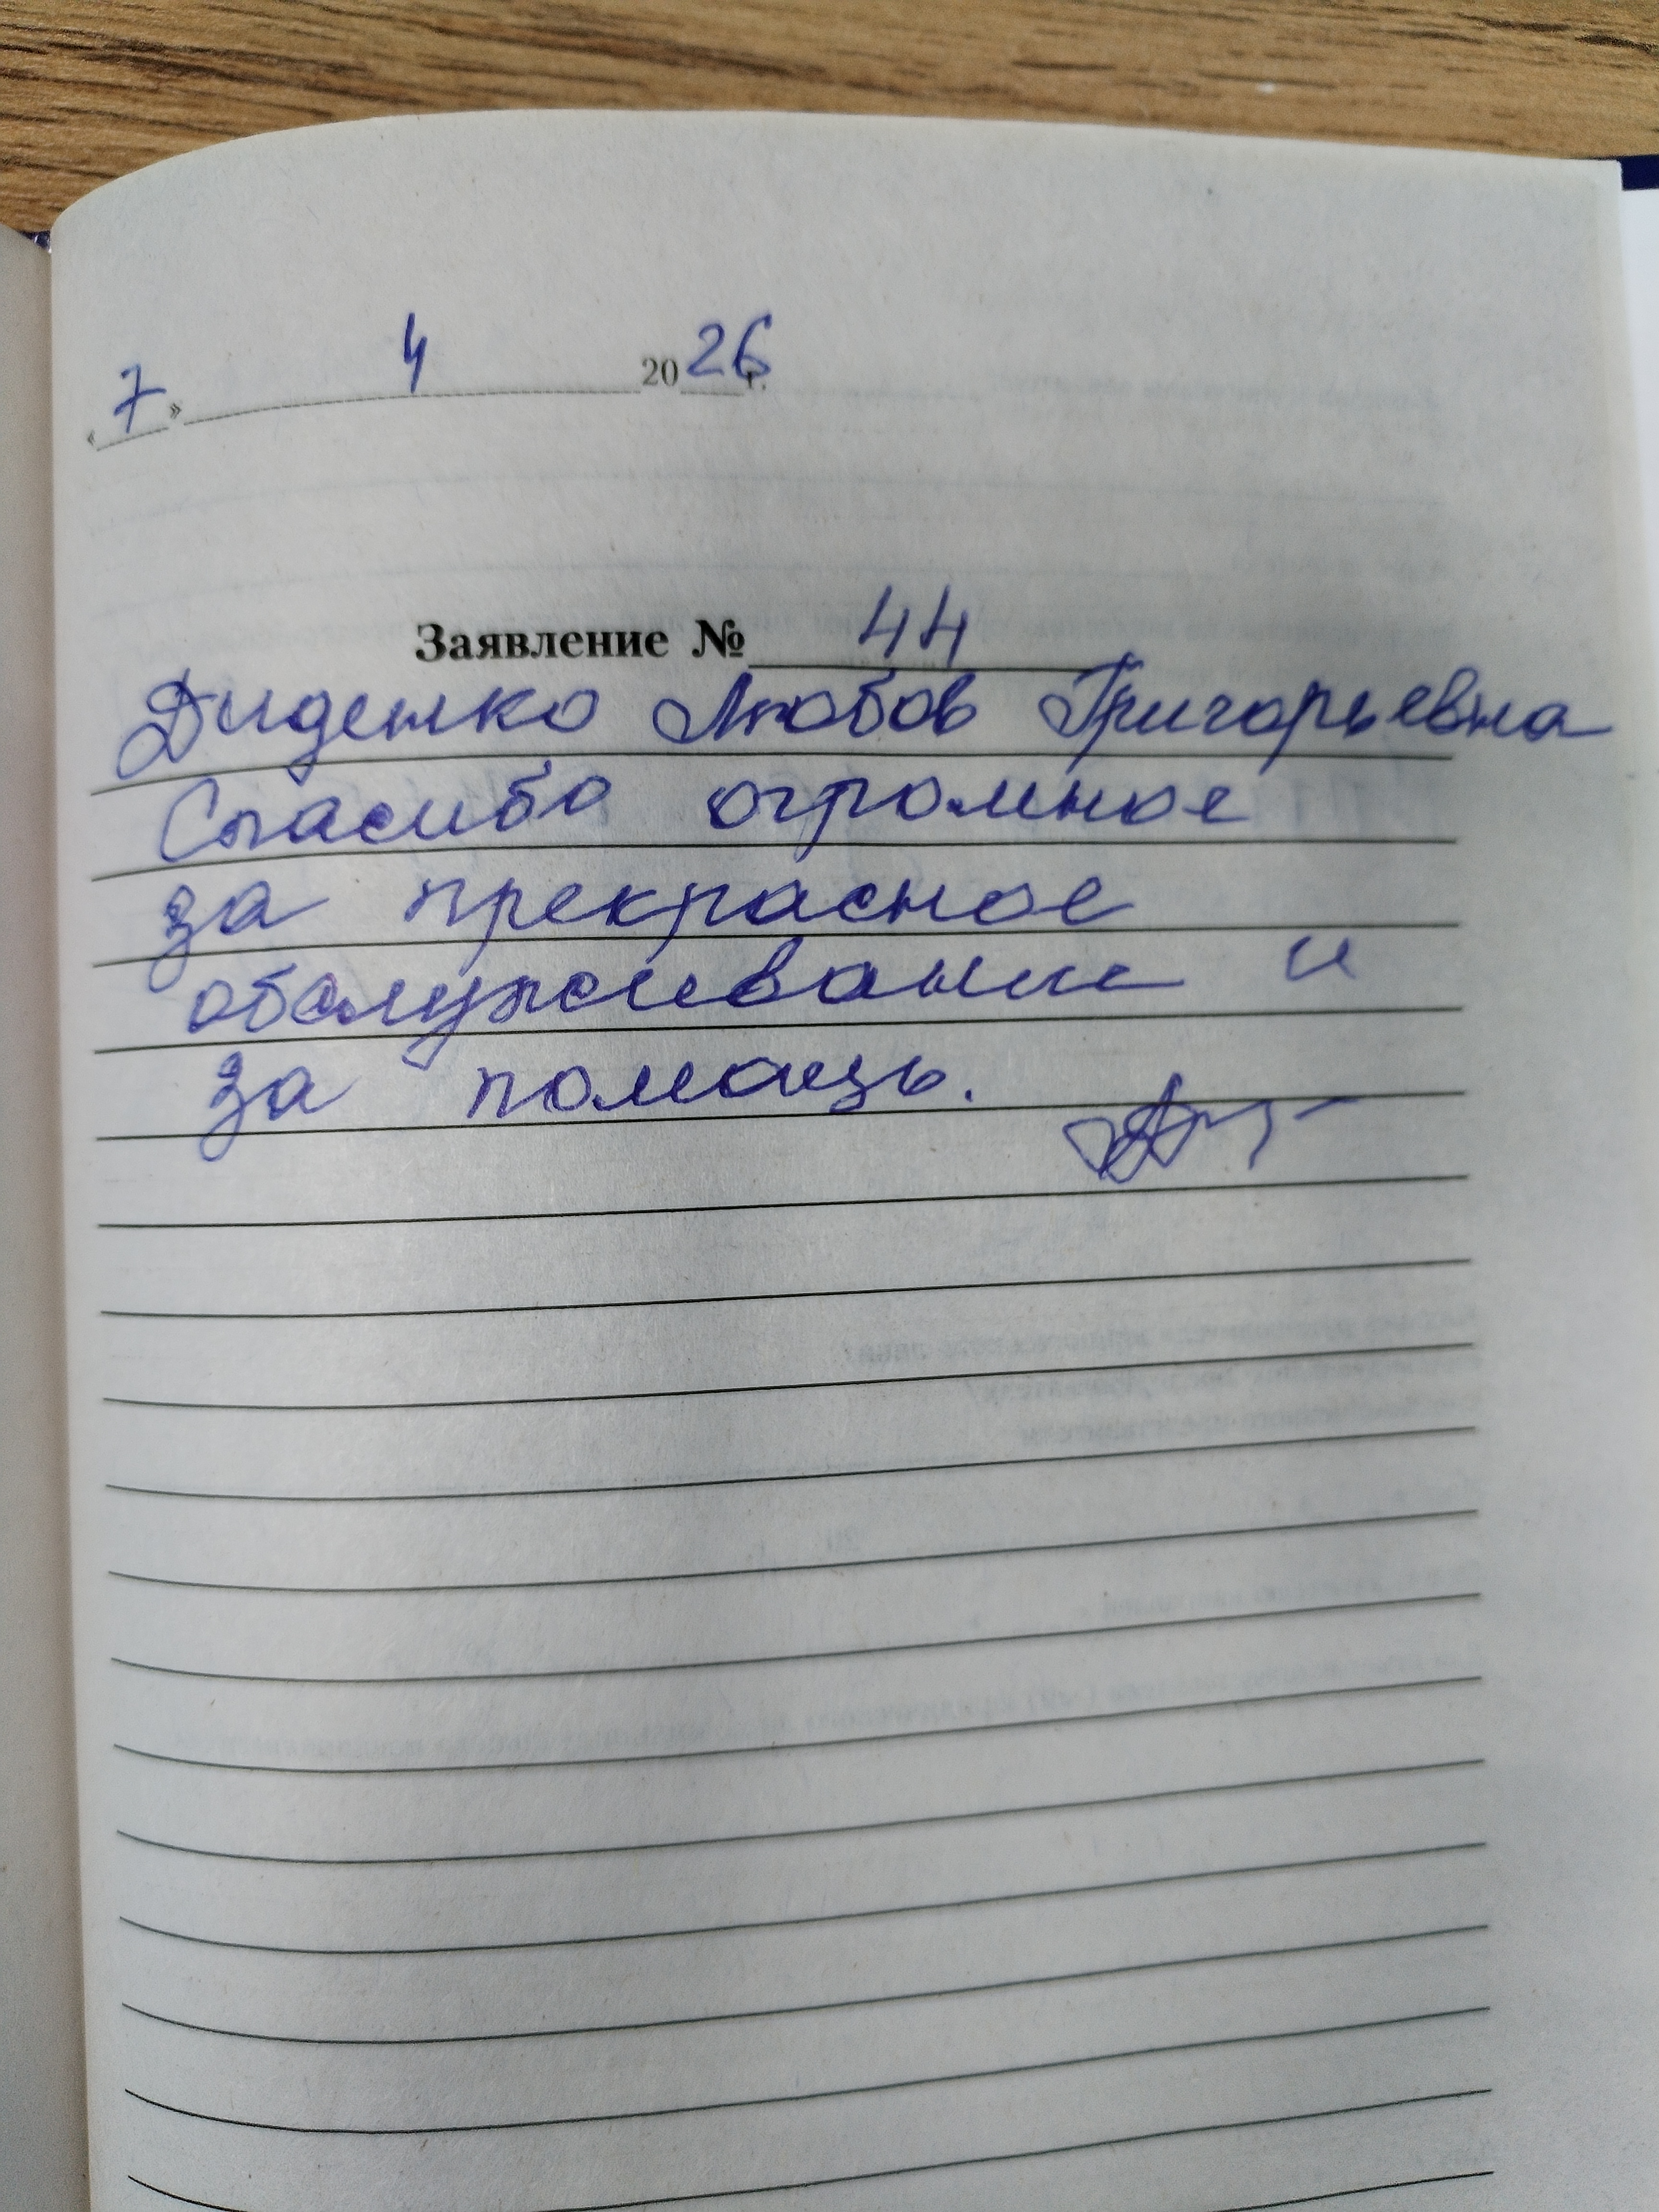 «7» 4 2026 г.
Заявление № 44
Диденко Любов Григорьевна
Спасибо огромное
за прекрасное
обслуживание и
за помощь.